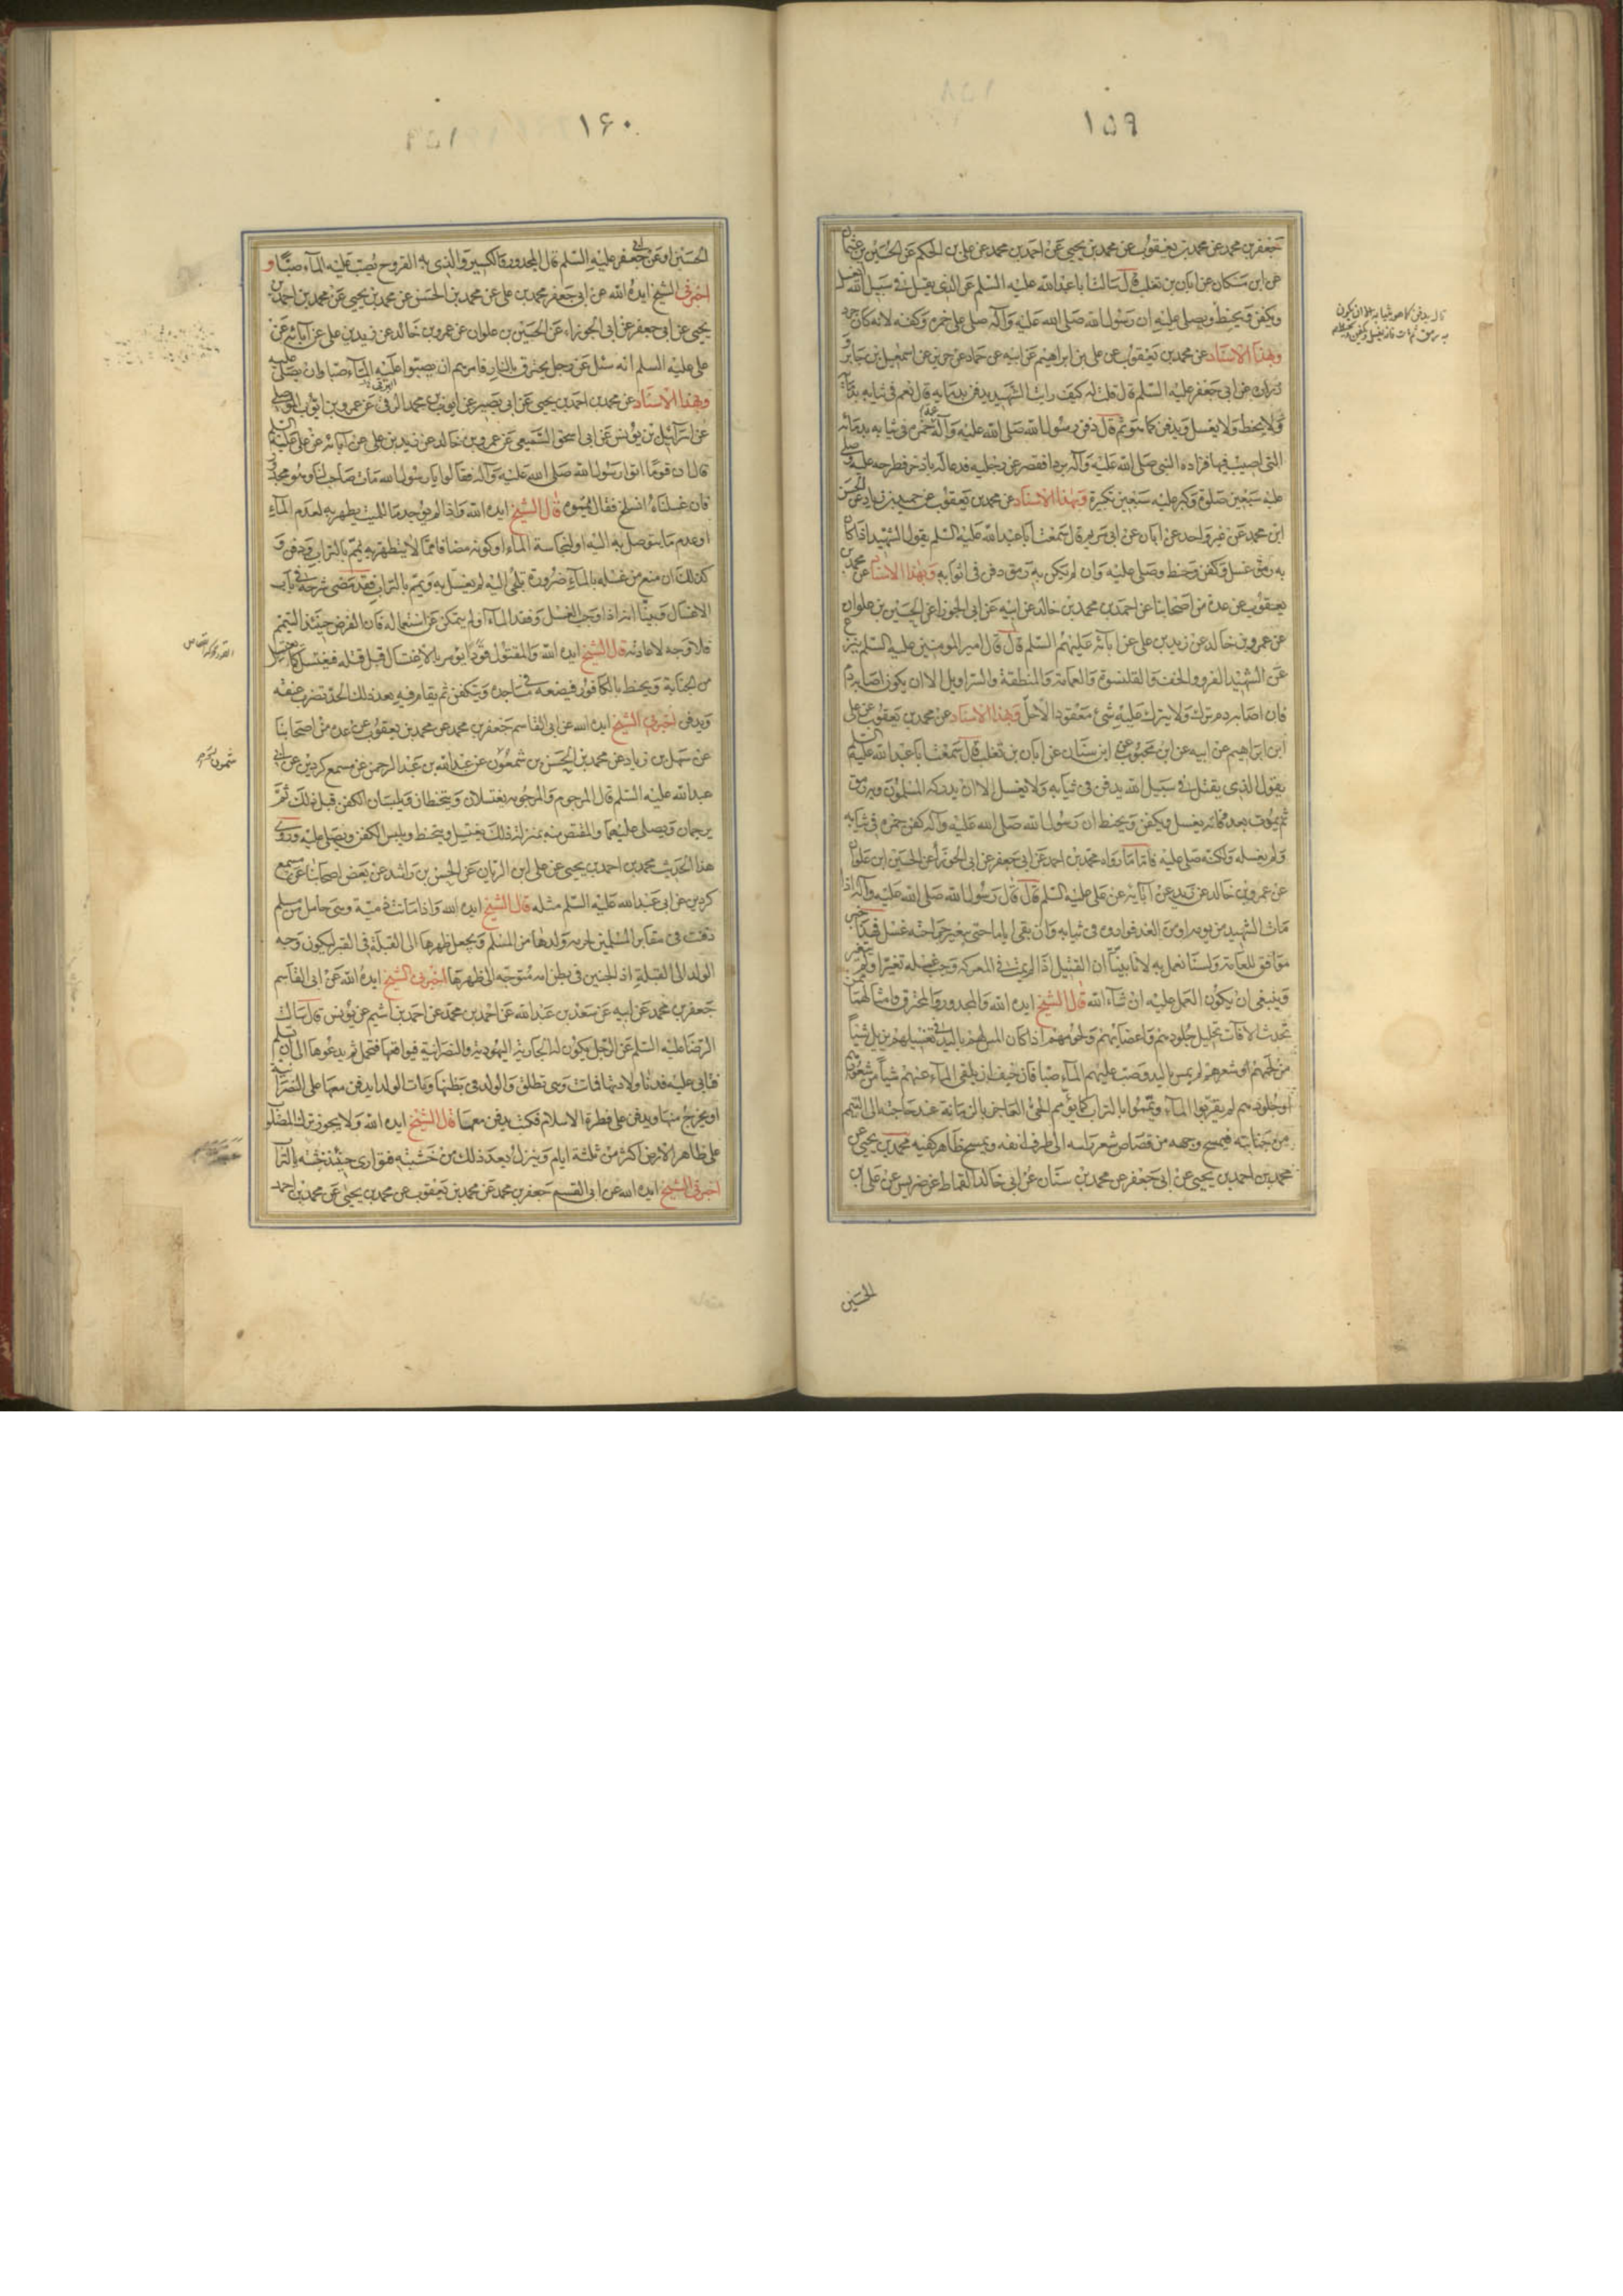 ١٥٩
جعفر بن محمد عن محمد بن يعقوب عن محمد بن يحيى عن احمد بن محمد عن علي بن الحكم عن الحسين بن عثمان
عن ابن مسكان عن ابان بن تغلب قال سالت ابا عبد الله عليه السلم عن الذي يقتل في سبيل الله ايغسل
ويكفن ويحنط ويصلى عليه ان رسول الله صلى الله عليه وآله صلى على حمزه وكفنه لانه كان جرد
وبهذا الاسناد عن محمد بن يعقوب عن علي بن ابراهيم عن ابيه عن حماد عن حريز عن اسمعيل بن جابر و
زرارة عن ابي جعفر عليه السلم قال قلت له كيف رايت الشهيد يدفن بدمائه قال نعم في ثيابه بدمائه
ولا يحنط ولا يغسل ويدفن كما هو ثم قال دفن رسول الله صلى الله عليه وآله عمه حمزه في ثيابه بدمائه
التي اصيب فيها فزاده النبي صلى الله عليه وآله بردا فقصر عن رجليه فدعا له باذخر فطرحه عليه وصلى
عليه سبعين صلوة وكبر عليه سبعين تكبيرة وبهذا الاسناد عن محمد بن يعقوب عن حميد بن زياد عن الحسن
ابن محمد عن غير واحد عن ابان عن ابي مريم قال سمعت ابا عبد الله عليه السلم يقول الشهيد اذا كان
به رمق غسل وكفن وحنط وصلى عليه وان لم يكن به رمق دفن في اثوابه وبهذا الاسناد عن محمد بن
يعقوب عن عدة من اصحابنا عن احمد بن محمد بن خالد عن ابيه عن ابي الجوزا عن الحسين بن علوان
عن عمرو بن خالد عن زيد بن علي عن ابائه عليهم السلم قال قال امير المومنين عليه السلم ينزع
عن الشهيد الفرو والخف والقلنسوة والعمامة والمنطقة والسراويل الا ان يكون اصابه دم
فان اصابه دم ترك ولا يترك عليه شئ معقود الا حل وبهذا الاسناد عن محمد بن يعقوب عن علي
ابن ابراهيم عن ابيه عن ابن محبوب عن ابن سنان عن ابان بن تغلب قال سمعت ابا عبد الله عليه السلم
يقول الذي يقتل في سبيل الله يدفن في ثيابه ولا يغسل الا ان يدركه المسلمون وبه رمق
ثم يموت بعد فانه يغسل ويكفن ويحنط ان رسول الله صلى الله عليه وآله كفن حمزه في ثيابه
ولم يغسله ولكنه صلى عليه فاما ما رواه محمد بن احمد عن ابي جعفر عن ابي الجوزا عن الحسين ابن علوان
عن عمرو بن خالد عن زيد عن آبائه عن علي عليه السلم قال قال رسول الله صلى الله عليه وآله اذا
مات الشهيد من يومه او من الغد فواروه في ثيابه وان بقي اياما حتى يتغير جراحته غسل فهذا خبر
موافق للعامة ولسنا نعمل به لانا بينا ان القتيل اذا لم يمت في المعركة وجب غسله تغير او لم يتغير
وينبغي ان يكون العمل عليه ان شاء الله قال الشيخ ايده الله والمجدور والمحترق وامثالهما ممن
تحدث الآفات تحليل جلودهم واعضائهم ولحومهم اذا كان المس لهم باليد في تغسيلهم يزيل شيئاً
من لحمهم او شعرهم لم يمس باليد وصب عليهم الماء صبا فان خيف ان يلقى الماء عنهم شيأ من شعورهم
او جلودهم لم يقربوا الماء ويمموا بالتراب كما يؤمم الحي العاجز بالزمانة عند حاجته الى التيمم
من جنابته فيمسح وجهه من قصاص شعر راسه الى طرف انفه ويمسح ظاهر كفيه محمد بن يحيى عن
محمد بن احمد بن يحيى عن ابي جعفر عن محمد بن سنان عن ابي خالد القماط عن ضريس عن علي بن
الحسين
١۶٠
الحسين او عن ابي جعفر عليه السلم قال المجدور والكسير والذي به القروح يصب عليه الماء صبّا و
اخبرني الشيخ ايده الله عن ابي جعفر محمد بن علي عن محمد بن الحسن عن محمد بن يحيى عن محمد بن احمد بن
يحيى عن ابي جعفر عن ابي الجوزاء عن الحسين بن علوان عن عمرو بن خالد عن زيد بن علي عن آبائه عن
علي عليه السلم انه سئل عن رجل يحترق بالنار فامرهم ان يصبوا عليه الماء صبا وان يصلى عليه
وبهذا الاسناد عن محمد بن احمد بن يحيى عن ابي بصير عن ايوب بن محمد الرقي عن عمرو بن ايوب الموصلي
عن اسرائيل بن يونس عن ابي اسحق السبيعي عن عمرو بن خالد عن زيد بن علي عن آبائه عن علي عليه السلم
قال ان قوما اتوا رسول الله صلى الله عليه وآله فقالوا يا رسول الله مات صاحب لنا وهو مجدور
فان غسلناه انسلخ فقال يمموه قال الشيخ ايده الله واذا لم يوجد ما للميت يطهر به لعدم الماء
او عدم ما يتوصل به اليه او لنجاسة الماء او كونه مضافا مما لا يتطهر به يمم بالتراب ودفن و
كذلك ان منع من غسله بالماء ضرورة تلجئ اليه لم يغسل به ويمم بالتراب فقد مضى شرحه في باب
الاغسال وبينا انه اذا وجب الغسل وفقد الماء او لم يتمكن من استعماله فان الفرض حينئذ التيمم
فلا وجه لاعادته قال الشيخ ايده الله والمقتول قودا يؤمر بالاغتسال قبل قتله فيغتسل كما يغتسل
من الجنابة ويحنط بالكافور فيضعه في مساجده ويتكفن ثم يقام فيه بعد ذلك الحد تضرب عنقه
ويدفن اخبرني الشيخ ايده الله عن ابي القاسم جعفر بن محمد عن محمد بن يعقوب عن عدة من اصحابنا
عن سهل بن زياد عن محمد بن الحسن بن شمعون عن عبد الله بن عبد الرحمن عن مسمع كردين عن ابي
عبد الله عليه السلم قال المرجوم والمرجومه يغتسلان ويتحنطان ويلبسان الكفن قبل ذلك ثم
يرجمان ويصلى عليهما والمقتص منه بمنزلة ذلك يغتسل ويتحنط ويلبس الكفن ويصلى عليه وروى
هذا الحديث محمد بن احمد بن يحيى عن علي ابن الريان عن الحسن بن راشد عن بعض اصحابنا عن مسمع
كردين عن ابي عبد الله عليه السلم مثله قال الشيخ ايده الله واذا ماتت ذمية وهي حامل من مسلم
دفنت في مقابر المسلمين لحرمه ولدها من المسلم ويجعل ظهرها الى القبلة في القبر ليكون وجه
الولد الى القبلة اذ الجنين في بطن امه متوجه الى ظهرها اخبرني الشيخ ايده الله عن ابي القاسم
جعفر بن محمد عن ابيه عن سعد بن عبد الله عن احمد بن محمد عن احمد بن اشيم عن يونس قال سالت
الرضا عليه السلم عن الرجل يكون له الجارية اليهودية والنصرانية فيواقعها فتحمل ثم يدعوها الى ان تسلم
فتابى عليه فدنا ولادتها فماتت وهي تطلق والولد في بطنها ومات الولد ايدفن معها على النصرانية
او يخرج منها ويدفن على فطرة الاسلام فكتب يدفن معها قال الشيخ ايده الله ولا يجوز ترك المصلوب
على ظاهر الارض اكثر من ثلثة ايام وينزل بعد ذلك من خشبته فيوارى حينئذ جثته بالتراب
اخبرني الشيخ ايده الله عن ابي القسم جعفر بن محمد عن محمد بن يعقوب عن محمد بن يحيى عن محمد بن احمد